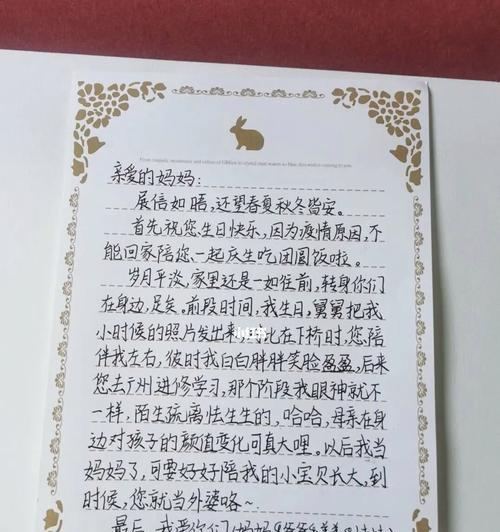 亲爱的妈妈:
展信如晤,还望春夏秋冬皆安。
首先祝您生日快乐,因为疫情原因,不
能回家陪您一起庆生吃团圆饭啦。
岁月平淡,家里还是一如往前,转身你们
在身边,足矣。前段时间,我生日,舅舅把我
小时候的照片发出来,在下桥时,您陪
伴我左右,彼时我白白胖胖笑脸盈盈,后来
您去广州进修学习,那个阶段我眼神就不
一样,陌生疏离怯生生的,哈哈,母亲在身
边对孩子的颜值变化可真大哩。以后我当
妈妈了,可要好好陪我的小宝贝长大,到
时候,您就当外婆咯~
最后,我爱你们